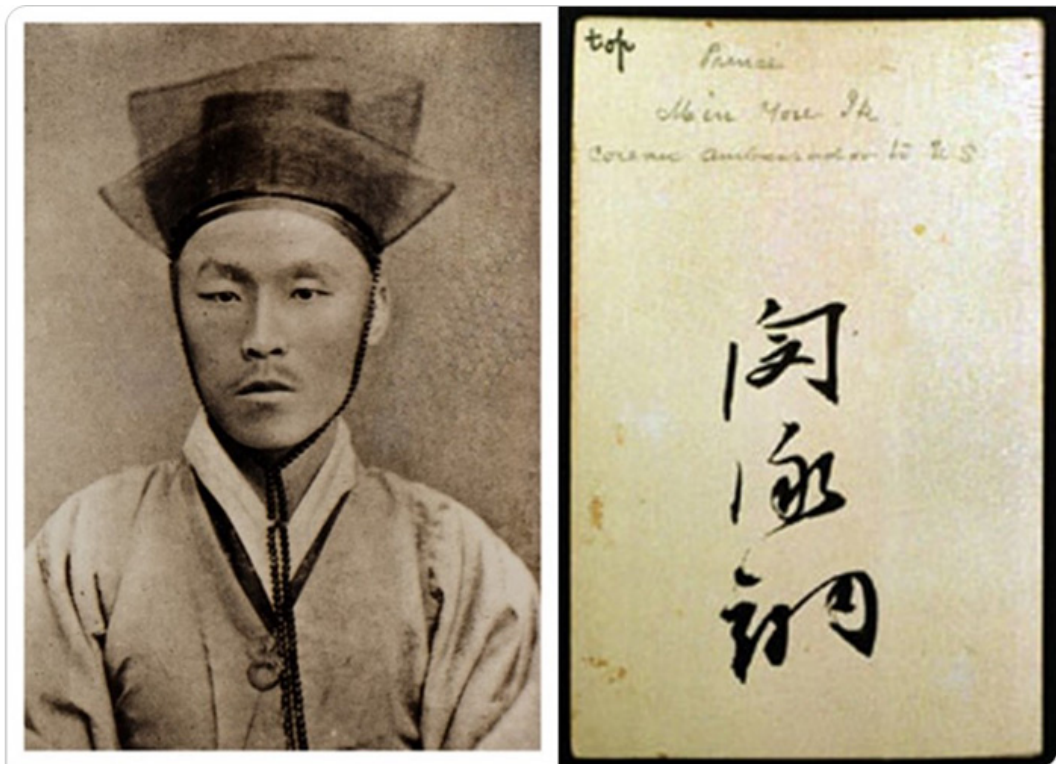 top
Prince
Min Ik
Corean Ambassador to U.S.
閔泳翊